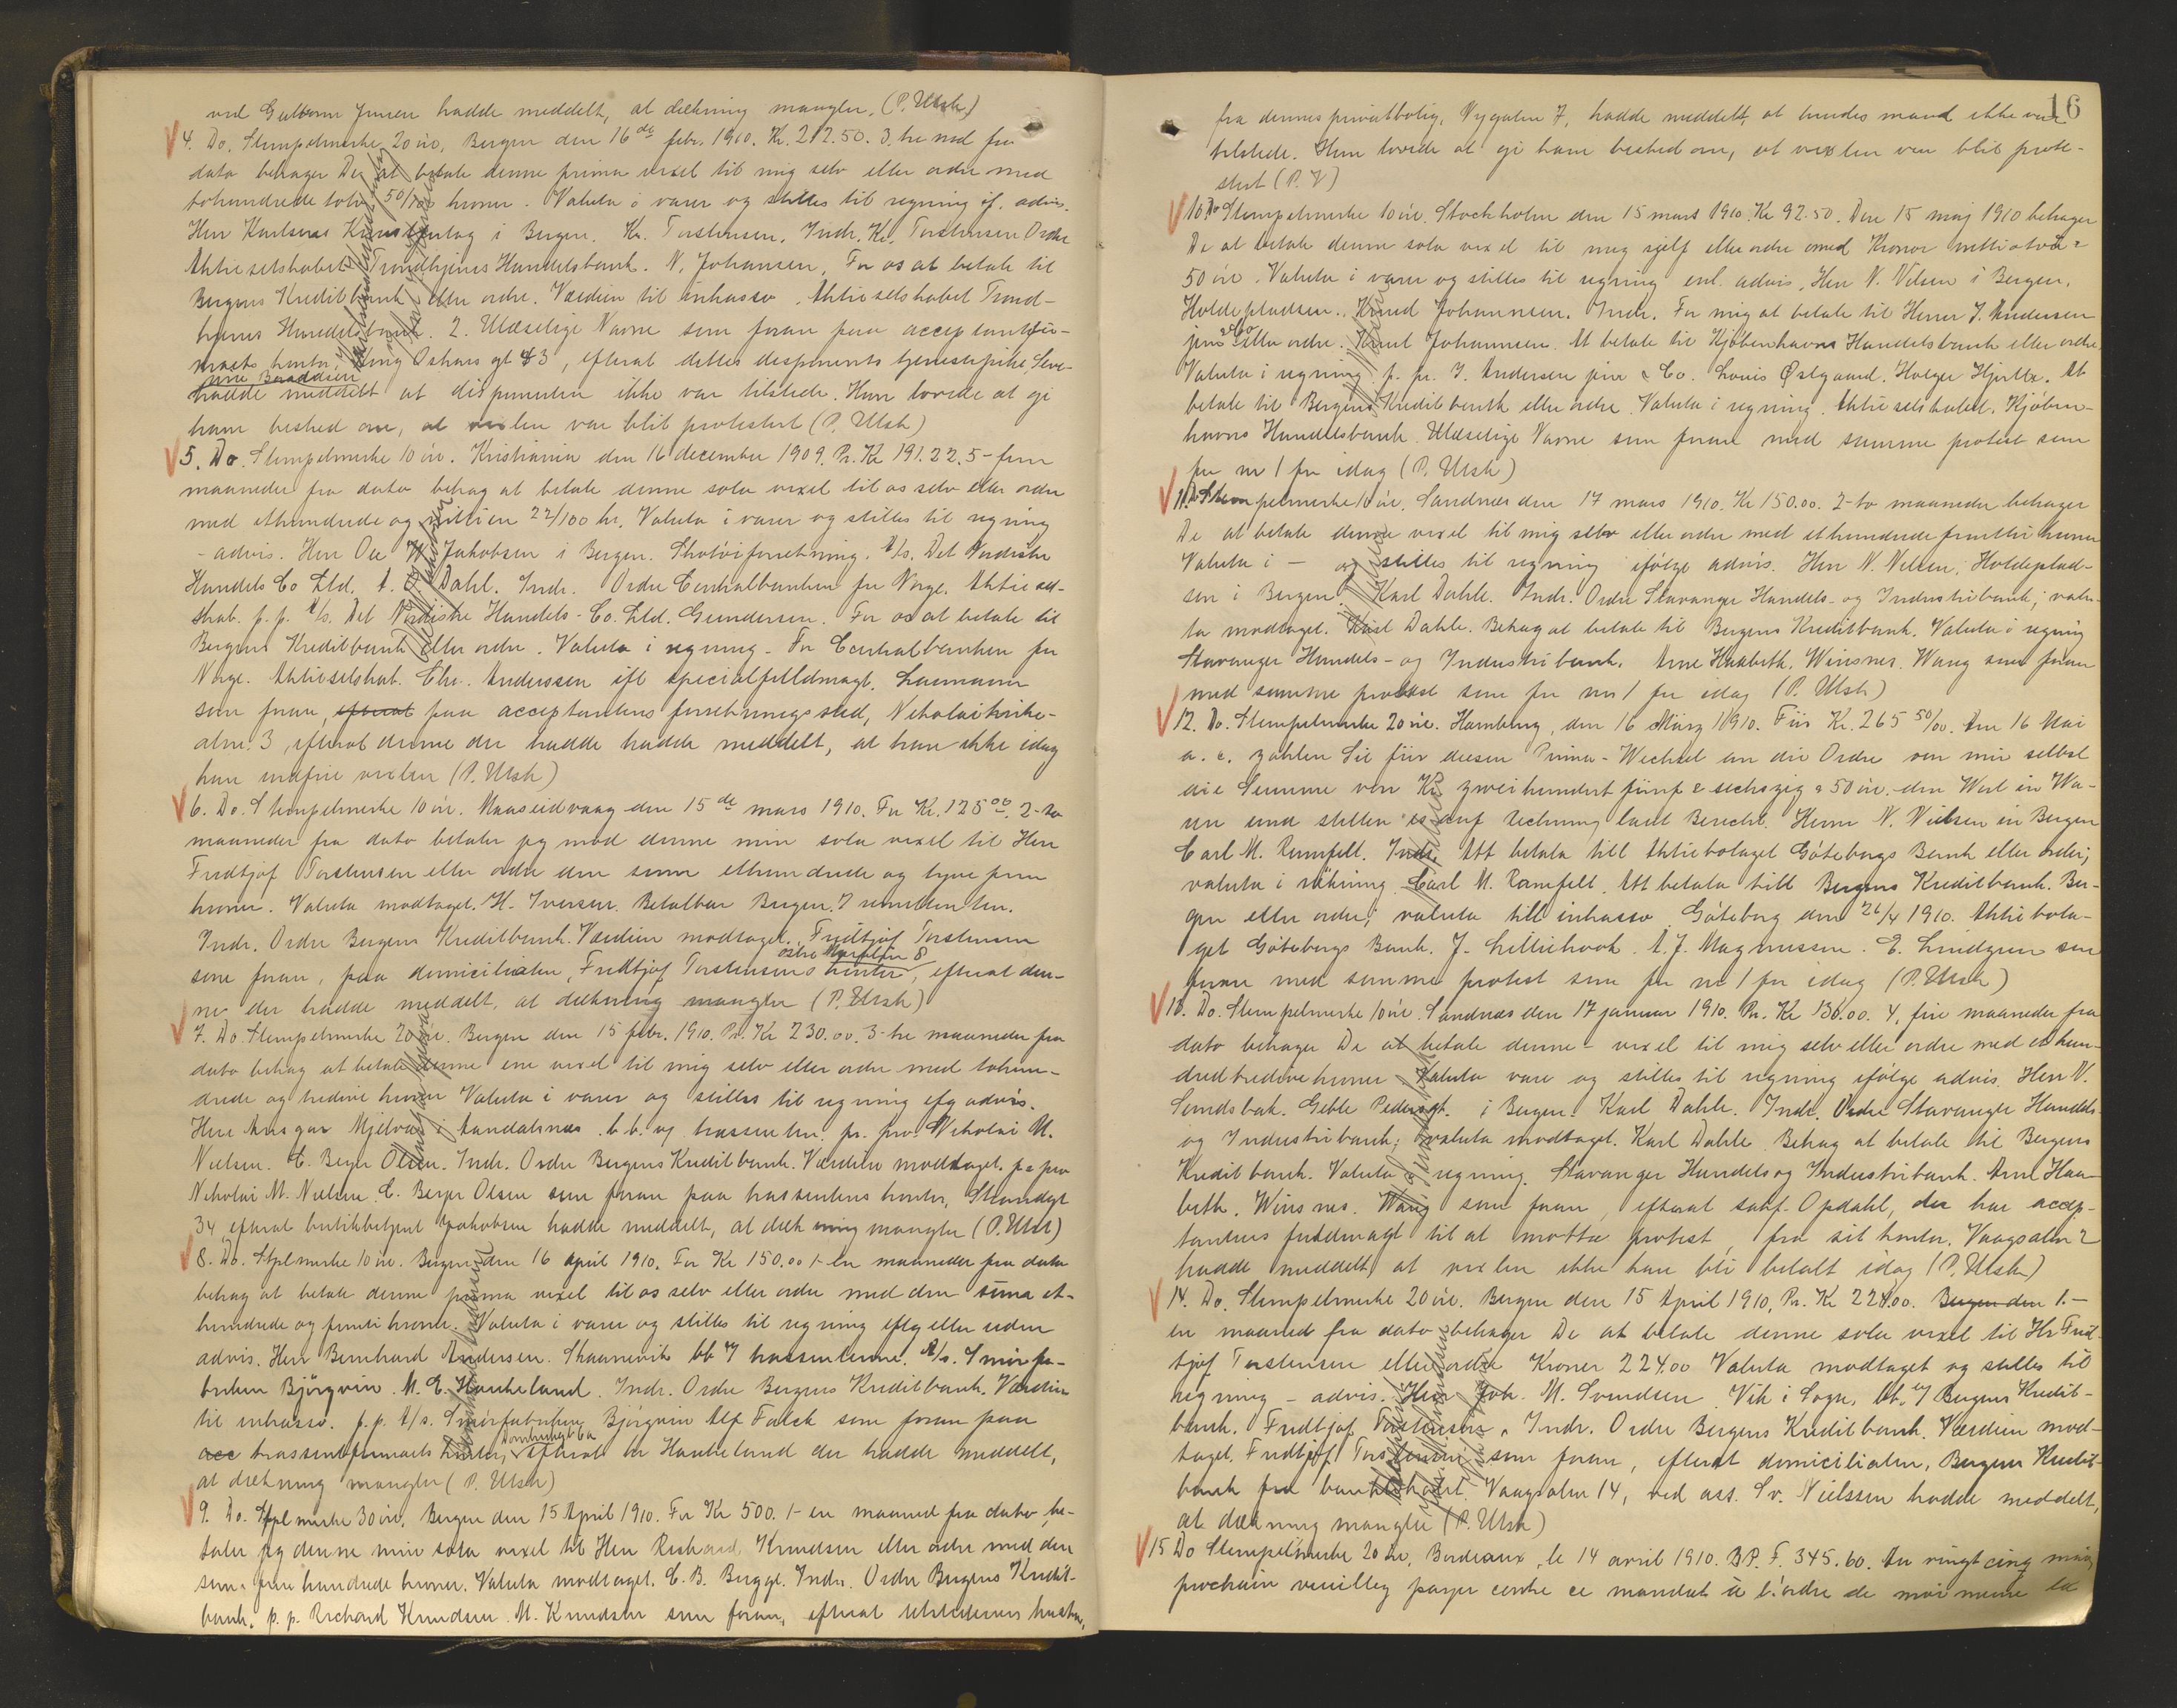 ved Guttorm Jensen hadde meddelt, at dækning mangler. (P. Utsk)
4. Do. Stempelmerke 20 øre, Bergen den 16de febr. 1910. Kr. 212.50. 3 tre md fra
dato behager De at betale denne prima vexel til mig selv eller ordre med
tohundrede tolv 50/100 kroner. Valuta i varer og stilles til regning if. advis.
Herr Karlsens Kunstforlag i Bergen. Kr. Torstensen. Indr. Kr. Torstensen Ordre
Aktieselskabet Trondhjems Handelsbank. N. Johansen, For os at betale til
Bergens Kreditbank eller ordre. Værdien til inkasso. Aktieselskabet Trond-
hjems Handelsbank. 2. Ulæselige Navne som foran paa acceptantfir-
maets kontor, Kong Oskars gt 43, efterat dettes disponents tjenestepike,
hadde meddelt at disponenten ikke var tilstede. Hun lovede at gi
ham besked om, at vexlen var blit protestert (P. Utsk)
5. Do. Stempelmerke 10 øre. Kristiania den 16 december 1909. Pr. Kr 191.22. 5 - fem
maaneder fra dato behag at betale denne sola vexel til os selv eller ordre
med ethundrede og nitti en 22/100 kr. Valuta i varer og stilles til regning
- advis. Herr Ole W Jakobsen i Bergen. Skotøiforretning. A/s. Det Nordiske
Handels Co Ltd. A. Dahl. Indr. Ordre Centralbanken for Norge. Aktiesel-
skab. p.p. A/s. Det Nordiske Handels-Co. Ltd. Gundersen. For os at betale til
Bergens Kreditbank eller ordre. Valuta i regning. For Centralbanken for
Norge. Aktieselskab. Chr. Anderssen ifl specialfuldmagt. Laumann
som foran, efterat paa acceptantens forretningssted, Nikolaikirke-
alm. 3, efterat denne der hadde hadde meddelt, at han ikke idag
kan indfri vexlen (P. Utsk)
6. Do. Stempelmerke 10 øre. Naaseidvaag den 15de mars 1910. For Kr. 125.00. 2-to
maaneder fra dato betaler jeg mod denne min sola vexel til Herr
Fredtjof Torstensen eller ordre den sum ethundrede og tyve fem
kroner. Valuta modtaget. H. Iversen. Betalbar Bergen. I remittenten.
Indr. Ordre Bergens Kreditbank. Værdien modtaget. Fridtjof Torstensen
som foran, paa domiciliaten, Fredtjof Torstensens kontor, efterat den-
Østre Muralm 8
ne der hadde meddelt, at dækning mangler (P. Utsk)
7. Do. Stempelmerke 20 øre. Bergen den 15 febr. 1910. Pr. Kr 230.00. 3- tre maaneder fra
dato behag at betale denne ene vexel til mig selv eller ordre med tohun-
drede og tredive kroner Valuta i varer og stilles til regning efg advis.
Herr Ansgar Mjelva i Aandalsnæs. b.b. og trassenten. pr. pro. Nikolai M.
Nielsen. C. Beyer Olsen. Indr. Ordre Bergens Kreditbank. Værdien modtaget. pr pro
Nikolai M. Nielsen. C. Beyer Olsen som foran paa trassentens kontor, Strandgt
34, efterat butikbetjent Jakobsen hadde meddelt, at dækning mangler (P. Utsk)
8. Do. Stplmerke 10 øre. Bergen den 16 april 1910. For Kr 150.00 1- en maaneder fra dato
behag at betale denne prima vexel til os selv eller ordre med den suma et-
hundrede og femti kroner. Valuta i varer og stilles til regning eftg eller uden
advis. Herr Bernhard Andersen. Skaanevik bb I trassenterne. A/s. Smørfa-
briken Bjørgvin. M. E. Haukeland. Indr. Ordre Bergens Kreditbank. Værdien
til inkasso. p.p. A/s. Smørfabriken Bjørgvin Alf Falck som foran paa
acc trassentfirmaets kontor, efterat hr Haukeland der hadde meddelt,
at dækning mangler (P. Utsk)
9. Do. Stpl merke 30 øre. Bergen den 15 April 1910. For Kr 500. 1- en maaned fra dato be-
taler jeg denne min sola vexel til Herr Richard Knudsen eller ordre med den
sum. fem hundrede kroner. Valuta modtaget. C. B. Bugge. Indr. Ordre Bergens Kredit-
bank. p.p. Richard Knudsen. M. Knudsen som foran, efterat utstederens hustru,
16
fra dennes privatbolig, Nygaten 7, hadde meddelt, at hendes mand ikke var
tilstede. Hun lovede at gi ham besked om, at vexlen var blit prote-
stert (P. U)
10. Do Stempelmerke 10 øre. Stockholm den 15 mars 1910. Kr 92.50. Den 15 maj 1910 behager
De at betale denne sola vexel til mig sjelf eller ordre med Kronor nittiotvå &
50 öre. Valuta i varer og stilles til regning enl. advis. Herr N. Nilsen i Bergen.
Holdepladsen. Knud Johannsen. Indr. For mig at betale til Herrer J. Andersen
jun & Co eller ordre. Knud Johannsen. At betale til Kjøbenhavns Handelsbank eller ordre.
Valuta i regning. p. pr. J. Andersen jun & Co. Louis Østgaard. Holger Hjelte. At
betale til Bergens Kreditbank eller ordre. Valuta i regning. Aktieselskabet. Kjøben-
havns Handelsbank. Ulæselige Navne som foran med samme protest som
for nr 1 for idag (P. Utsk)
11. Do Stempelmerke 10 øre. Sandnes den 17 mars 1910. Kr 150.00. 2-to maaneder behager
De at betale denne vexel til mig selv eller ordre med ethundredefemtti kroner
Valuta i - og stilles til regning ifølge advis. Herr N. Nilsen, Holdeplad-
sen i Bergen. Karl Dahle. Indr. Ordre Stavanger Handels- og Industribank; valu-
ta modtaget. Karl Dahle. Behag at betale til Bergens Kreditbank. Valuta i regning
Stavanger Handels- og Industribank. Arne Haabeth. Winsnes. Wang som foran
med samme protest som for nr 1 for idag (P. Utsk)
12. Do. Stempelmerke 20 øre. Hamburg, den 16 März 1910. Für Kr. 265 50/00. Am 16 Mai
a. c. zahlen Sie für diesen Prima-Wechsel an die Ordre von mir selbst
die Summe von Kr zweihundert fünf & sechszig & 50 øre. den Wert in Wa-
ren und stellen es auf Rechnung laut Bericht. Herrn N. Nielsen in Bergen
Carl M. Ramfelt. Indr. Att betala till Aktiebolaget Göteborgs Bank eller order;
valuta i räkning. Carl M. Ramfelt. Att betala till Bergens Kreditbank. Ber-
gen eller order; valuta till inkasso. Göteborg den 26/4 1910. Aktiebola-
get Göteborgs Bank. J. Lilliehöök. A. J. Magnusson. E. Lindgren som
foran med samme protest som for nr 1 for idag (P. Utsk)
13. Do. Stempelmerke 10 øre. Sandnæs den 17 januar 1910. Pr. Kr 130.00. 4, fire maaneder fra
dato behager De at betale denne - vexel til mig selv eller ordre med et hun-
dredtredive kroner Valuta vare og stilles til regning ifølge advis. Herr N.
Sundsbak. Geble Pedersgt. i Bergen. Karl Dahle. Indr. Ordre Stavanger Handels-
og Industribank; valuta modtaget. Karl Dahle. Behag at betale til Bergens
Kreditbank. Valuta i regning. Stavanger Handels og Industribank. Arne Haa-
beth. Winsnes. Wang som foran, efterat sakf. Opdahl, der har accep-
tantens fuldmagt til at motta protest, fra sit kontor. Vaagsalm 2
hadde meddelt, at vexlen ikke kan bli betalt idag (P. Utsk)
14. Do. Stempelmerke 20 øre. Bergen den 15 April 1910, Pr. Kr 224.00. Bergen den 1.-
en maaned fra dato behager De at betale denne sola vexel til Hr Frid-
tjof Torstensen eller ordre Kroner 224.00 Valuta modtaget og stilles til
regning - advis. Herr Joh. M. Svendsen Vik i Sogn, bb. I Bergens Kredit-
bank. Fridtjof Torstensen. Indr. Ordre Bergens Kreditbank. Værdien mod-
taget. Fridtjof Torstensen som foran, efterat domiciliaten, Bergens Kredit-
bank fra banklokalet. Vaagsalm 14, ved ass. Sv. Nielssen hadde meddelt,
at dækning mangler (P. Utsk)
15 Do Stempelmerke 20 øre, Bordeaux, le 14 avril 1910. B.P. F. 345.60. Au vingt cinq mai
prochain veuillez payer contre ce mandat à l'ordre de moi même la